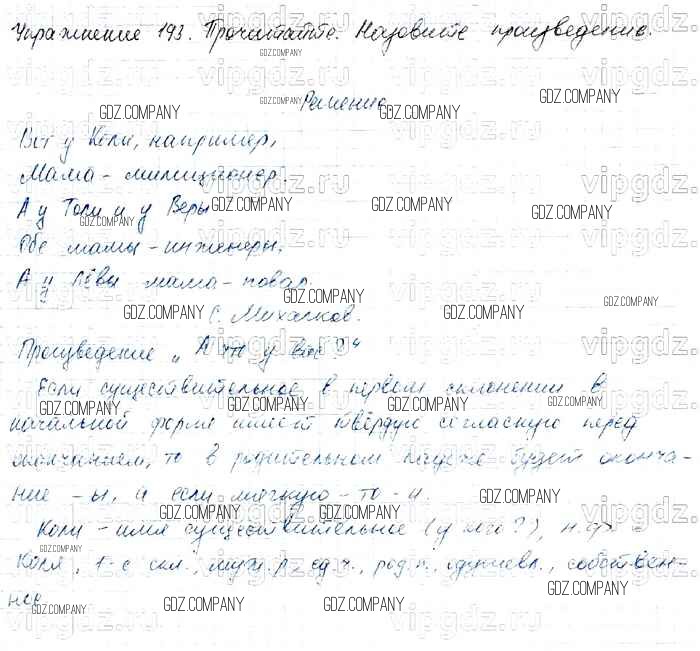 Упражнение 193. Прочитайте. Назовите произведение.
Решение
Вот у Коли, например,
Мама - милиционер.
А у Толи и у Веры
Обе мамы - инженеры.
А у Лёвы мама - повар.
С. Михалков.
Произведение „А что у вас?“
Если существительное в первом склонении в
начальной форме имеет твёрдую согласную перед
окончанием, то в родительном падеже будет оконча-
ние -ы, а если мягкую - то -и.
Коли - имя существительное (у кого?), н.ф.
Коля, 1-е скл., муж. р., ед.ч., род.п., одушевл., собствен-
ное